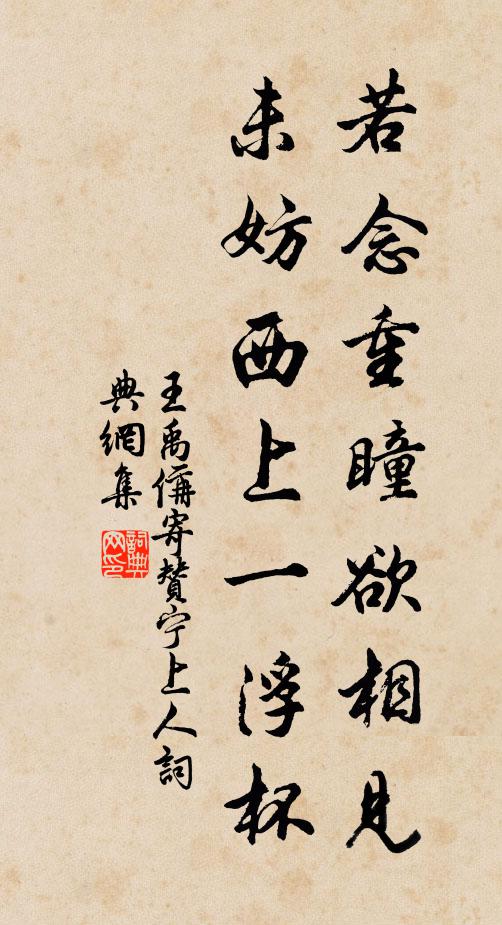 若念重瞳欲相見
未妨西上一浮杯
王禹偁寄贊宁上人詞
典網集
詞典
网印